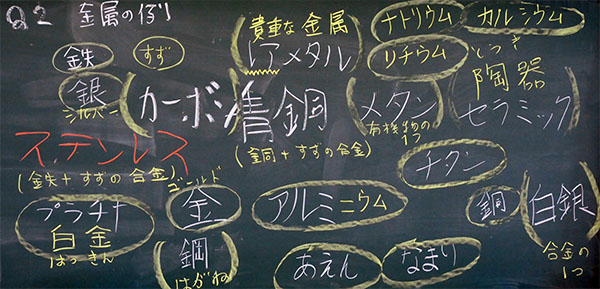 Q2 金属の例
鉄
すず
(貴重な金属)
レアメタル
ナトリウム
カルシウム
リチウム
銀
シルバー
(カーボン)
(青銅)
(銅+すずの合金)
(メタン)
有機物の
1つ
陶器
(セラミック)
ステンレス
(鉄+すずの合金)
チタン
プラチナ
白金
はっきん
ゴールド
金
アルミニウム
銅
(白銀)
合金の
1つ
(鋼)
はがね
あえん
なまり